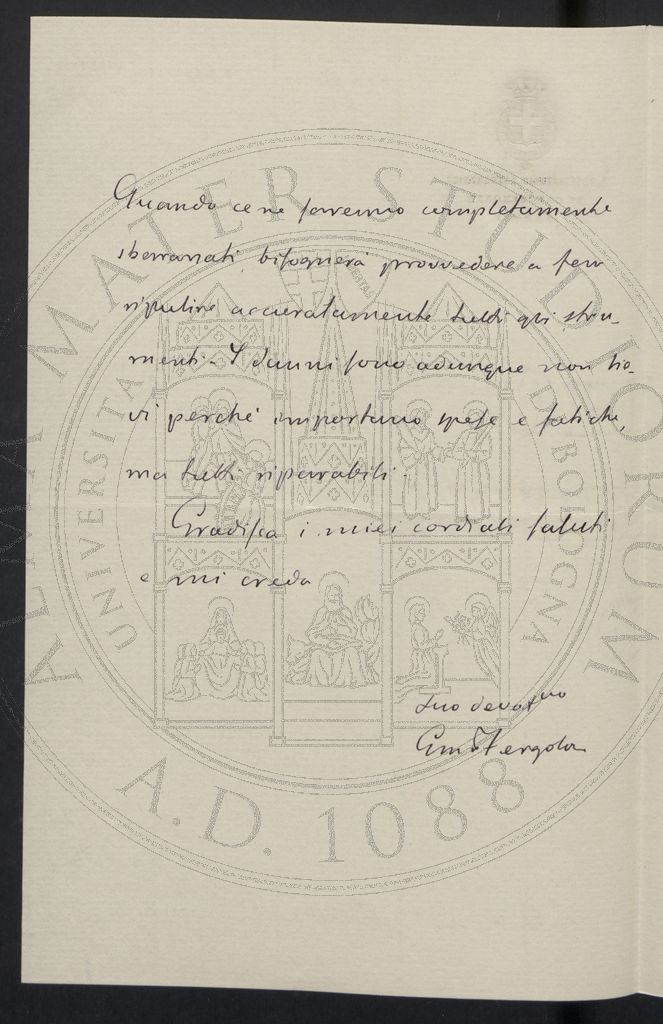 Quando ce ne saremo completamente
sbarazzati, bisognerà provvedere a far
ripulire accuratamente tutti gli stru-
menti. I danni sono adunque non lie-
vi perché importano spese e fatiche,
ma tutti riparabili.
Gradisca i miei cordiali saluti
e mi creda
Suo devotmo
Eml Fergola
ALMA MATER STUDIORUM
UNIVERSITÀ DI BOLOGNA
A.D. 1088